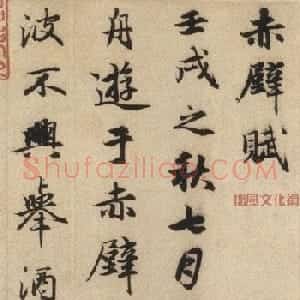 赤壁賦
壬戌之秋七月
舟遊于赤壁
波不興舉酒
Shufaziliao.com